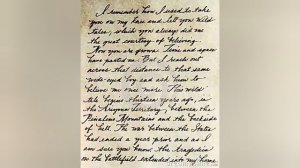 I remember how I used to take
you on my knee and tell you wild
tales, which you always did me
the great courtesy of believing.
Now you are grown. Time and space
have parted us. But I reach out
across that distance to that same
wide-eyed boy and ask him to
believe me once more. This wild
tale begins thirteen years ago, in
the Arizona Territory, between the
Pinaleno Mountains and the backside
of hell. The war between the States
had ended a year prior and as
you know the tragedies
on the battlefield extended into my home